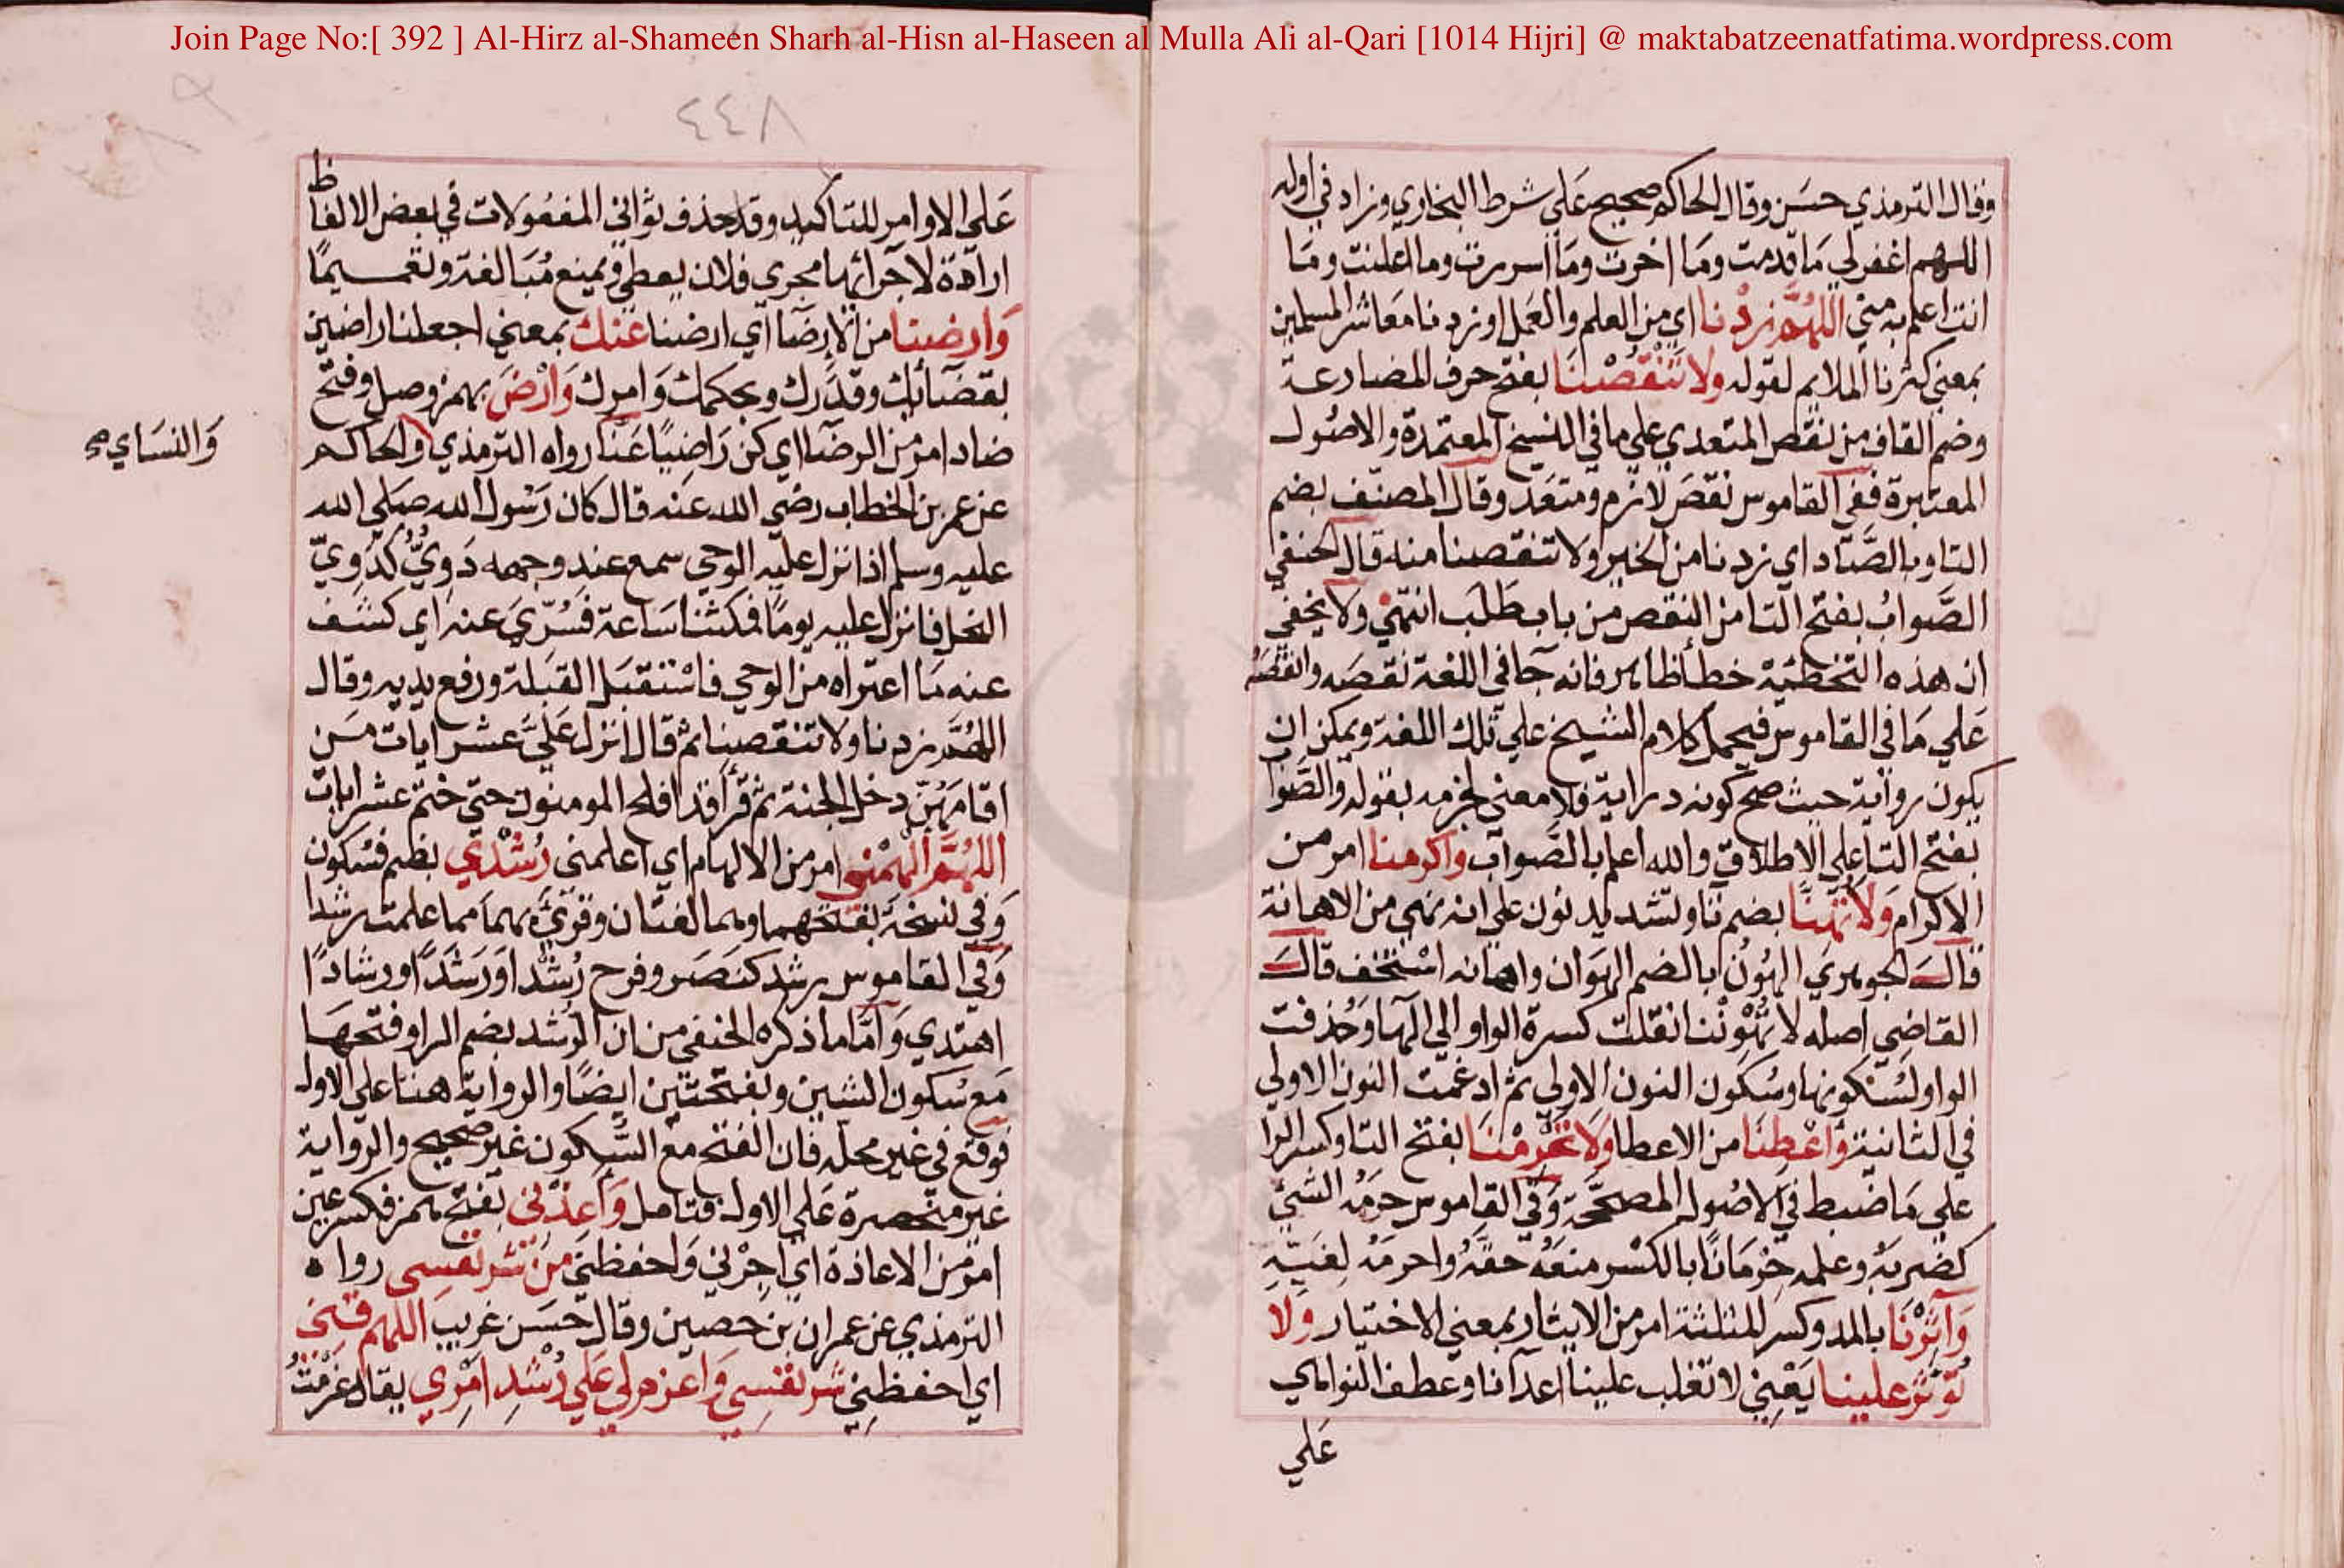 Join Page No:[ 392 ] Al-Hirz al-Shameen Sharh al-Hisn al-Haseen al Mulla Ali al-Qari [1014 Hijri] @ maktabatzeenatfatima.wordpress.com
وقال الترمذي حسن وقال الحاكم صحيح على شرط البخاري وزاد في اوله
اللهم اغفر لي ما قدمت وما اخرت وما اسررت وما اعلنت وما
انت اعلم به مني اللهم زدنا اي من العلم والعمل او زدنا معاشر المسلمين
بمعنى كثرنا الملايم لقوله ولا تنقصنا بفتح حرف المضارعة
وضم القاف من نقص المتعدي علي ما في النسخ المعتمدة والاصول
المعتبرة ففي القاموس نقص لازم ومتعد وقال المصنف بضم
التا وبالصاد اي زدنا من الخير ولا تنقصنا منه قال الحنفي
الصواب بفتح التا من النقص من باب طلب انتهي ولا يخفي
ان هذه التخطئة خطأ ظاهر فانه جا في اللغة نقصه وانقصه
علي ما في القاموس فيحمل كلام الشيخ علي تلك اللغة ويمكن ان
يكون رواية حيث صح كونه دراية فلا معني لجزمه بقوله والصوا
بفتح التا علي الاطلاق والله اعلم بالصواب واكرمنا امر من
الاكرام ولا تهنا بضم تا وتشديد نون علي انه نهي من الاهانة
قال الجوهري الهون بالضم الهوان واهانه استخف قال
القاضي اصله لا تهوننا انقلت كسرة الواو الي الها وحذفت
الواو لسكونها وسكون النون الاولي ثم ادغمت النون الاولي
في الثانية واعطنا من الاعطا ولا تحرمنا بفتح التا وكسر الرا
علي ما ضبط في الاصول المصححة وفي القاموس حرمه الشئ
كضربه وعلمه حرمانا بالكسر منعه حقه واحرمه لغية
وآثرنا بالمد وكسر المثلثة امر من الايثار بمعني الاختيار ولا
تؤثر علينا يعني لا تغلب علينا اعدآنا وعطف النواهي
علي
٤٤٨
علي الاوامر للتاكيد وقد حذف ثواني المفعولات في بعض الالفاظ
ارادة لاجرائها مجري فلان يعطي ويمنع مبالغة وتعميما
وارضنا من الارضا اي ارضنا عنك بمعني اجعلنا راضين
بقضائك وقدرك وبحكمك وامرك وارض بهمز وصل وفتح
ضاد امر من الرضا اي كن راضيا عنا رواه الترمذي والحاكم
والنساي صح
عن عمر بن الخطاب رضي الله عنه قال كان رسول الله صلي الله
عليه وسلم اذا نزل عليه الوحي سمع عند وجهه دوي كدوي
النحل فانزل عليه يوما فمكثنا ساعة فسري عنه اي كشف
عنه ما اعتراه من الوحي فاستقبل القبلة ورفع يديه وقال
اللهم زدنا ولا تنقصنا ثم قال انزل علي عشر ايات من
اقامهن دخل الجنة ثم قرأ قد افلح المومنون حتي ختم عشر ايات
اللهم الهمني امر من الالهام اي اعلمني رشدي بضم فسكون
وفي نسخة بفتحهما وهما لغتان وقرئ بهما مما علمت رشدا
وفي القاموس رشد كنصر وفرح رشدا ورشدا ورشادا
اهتدي واما ما ذكره الحنفي من ان الرشد بضم الرا وفتحها
مع سكون الشين وبفتحتين ايضا والرواية هنا علي الاول
فوقع في غير محله فان الفتح مع السكون غير صحيح والرواية
غير منحصرة علي الاول فتامل واعذني بفتح همز فكسر عين
امر من الاعاذة اي اجرني واحفظني من شر نفسي رواه
الترمذي عن عمران بن حصين وقال حسن غريب اللهم قني
اي احفظني شر نفسي واعزم لي علي رشد امري يقال عزمت